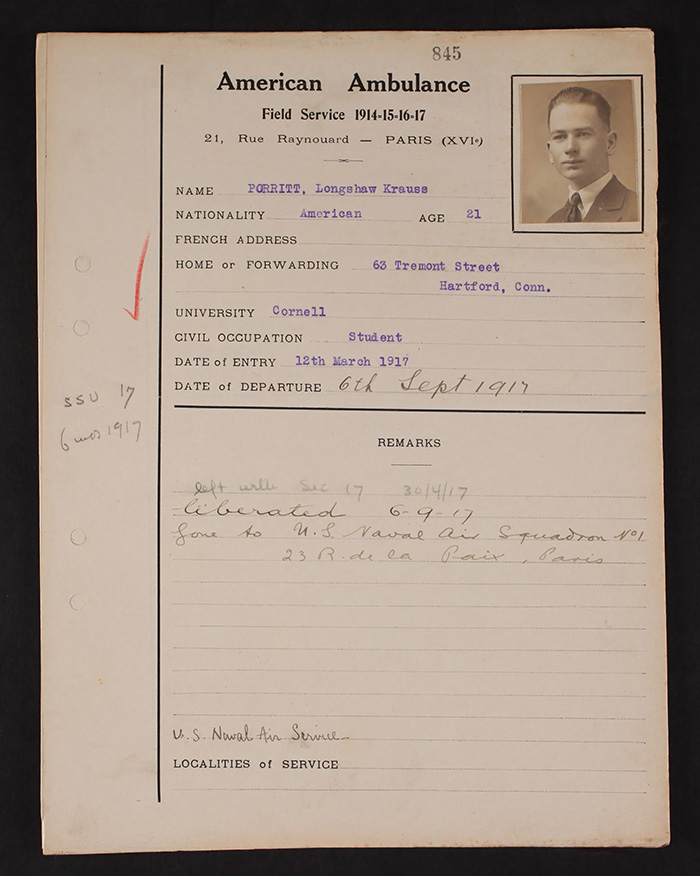 845
American Ambulance
Field Service 1914-15-16-17
21, Rue Raynouard — PARIS (XVIe)
NAME PORRITT, Longshaw Krauss
NATIONALITY American AGE 21
FRENCH ADDRESS
HOME or FORWARDING 63 Tremont Street
Hartford, Conn.
UNIVERSITY Cornell
CIVIL OCCUPATION Student
DATE of ENTRY 12th March 1917
DATE of DEPARTURE 6th Sept 1917
SSU 17
6 mos 1917
REMARKS
left with Sec 17 30/4/17
liberated 6-9-17
Gone to U.S. Naval Air Squadron No 1
23 R. de la Paix, Paris
U.S. Naval Air Service
LOCALITIES of SERVICE